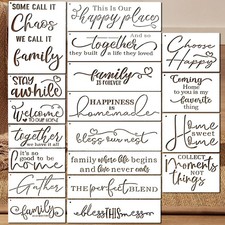 SOME CALL IT
Chaos
WE CALL IT
family
STAY
awhile
Welcome
TO OUR HOME
together
we have it all
it's so
good to be
home
Gather
family
This Is Our
happy place
And so
together
they built a life they loved
family
IS FOREVER
HAPPINESS
is
homemade
bless our nest
family where life begins
and love never ends
THE perfect BLEND
bless THIS mess
Choose
Happy
Coming
Home
to you is my
favorite
thing
Home
sweet
Home
COLLECT
MOMENTS
NOT
THINGS